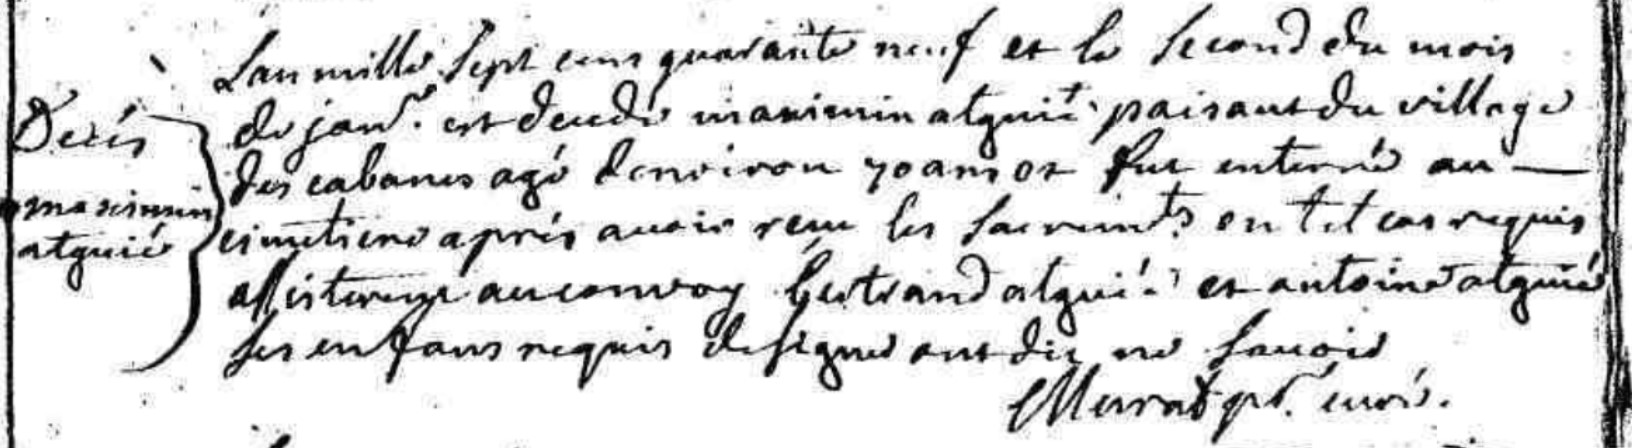 Lan mille Sept cens quarante neuf et le second du mois
de janr. est decedé maximin alguié paisant du village
Decés
des cabanes agé denviron 70 ans et fut enterré au —
maximin
alguié
cimetiere aprés avoir reçu les sacremts. en tel cas requis
assisterent au convoy Bertrand alguié et antoine alguié
ses enfans requis de signer ont dit ne savoir
pt. curé.